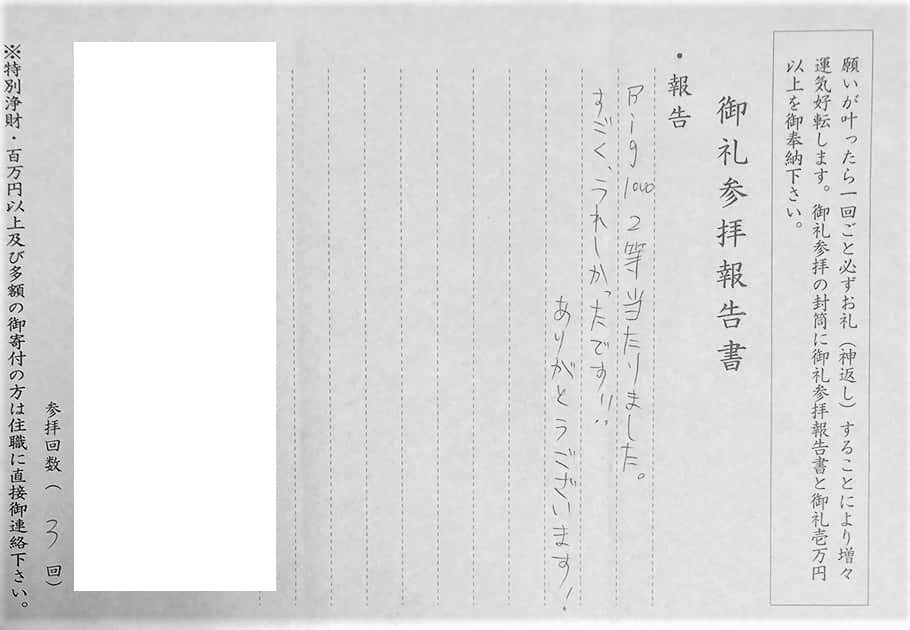 願いが叶ったら一回ごと必ずお礼（神返し）することにより増々
運気好転します。御礼参拝の封筒に御礼参拝報告書と御礼壱万円
以上を御奉納下さい。
御礼参拝報告書
・報告
Big 1000 2等当たりました。
すごく、うれしかったです!!
ありがとうございます!
参拝回数（ 3 回）
※特別浄財・百万円以上及び多額の御寄付の方は住職に直接御連絡下さい。